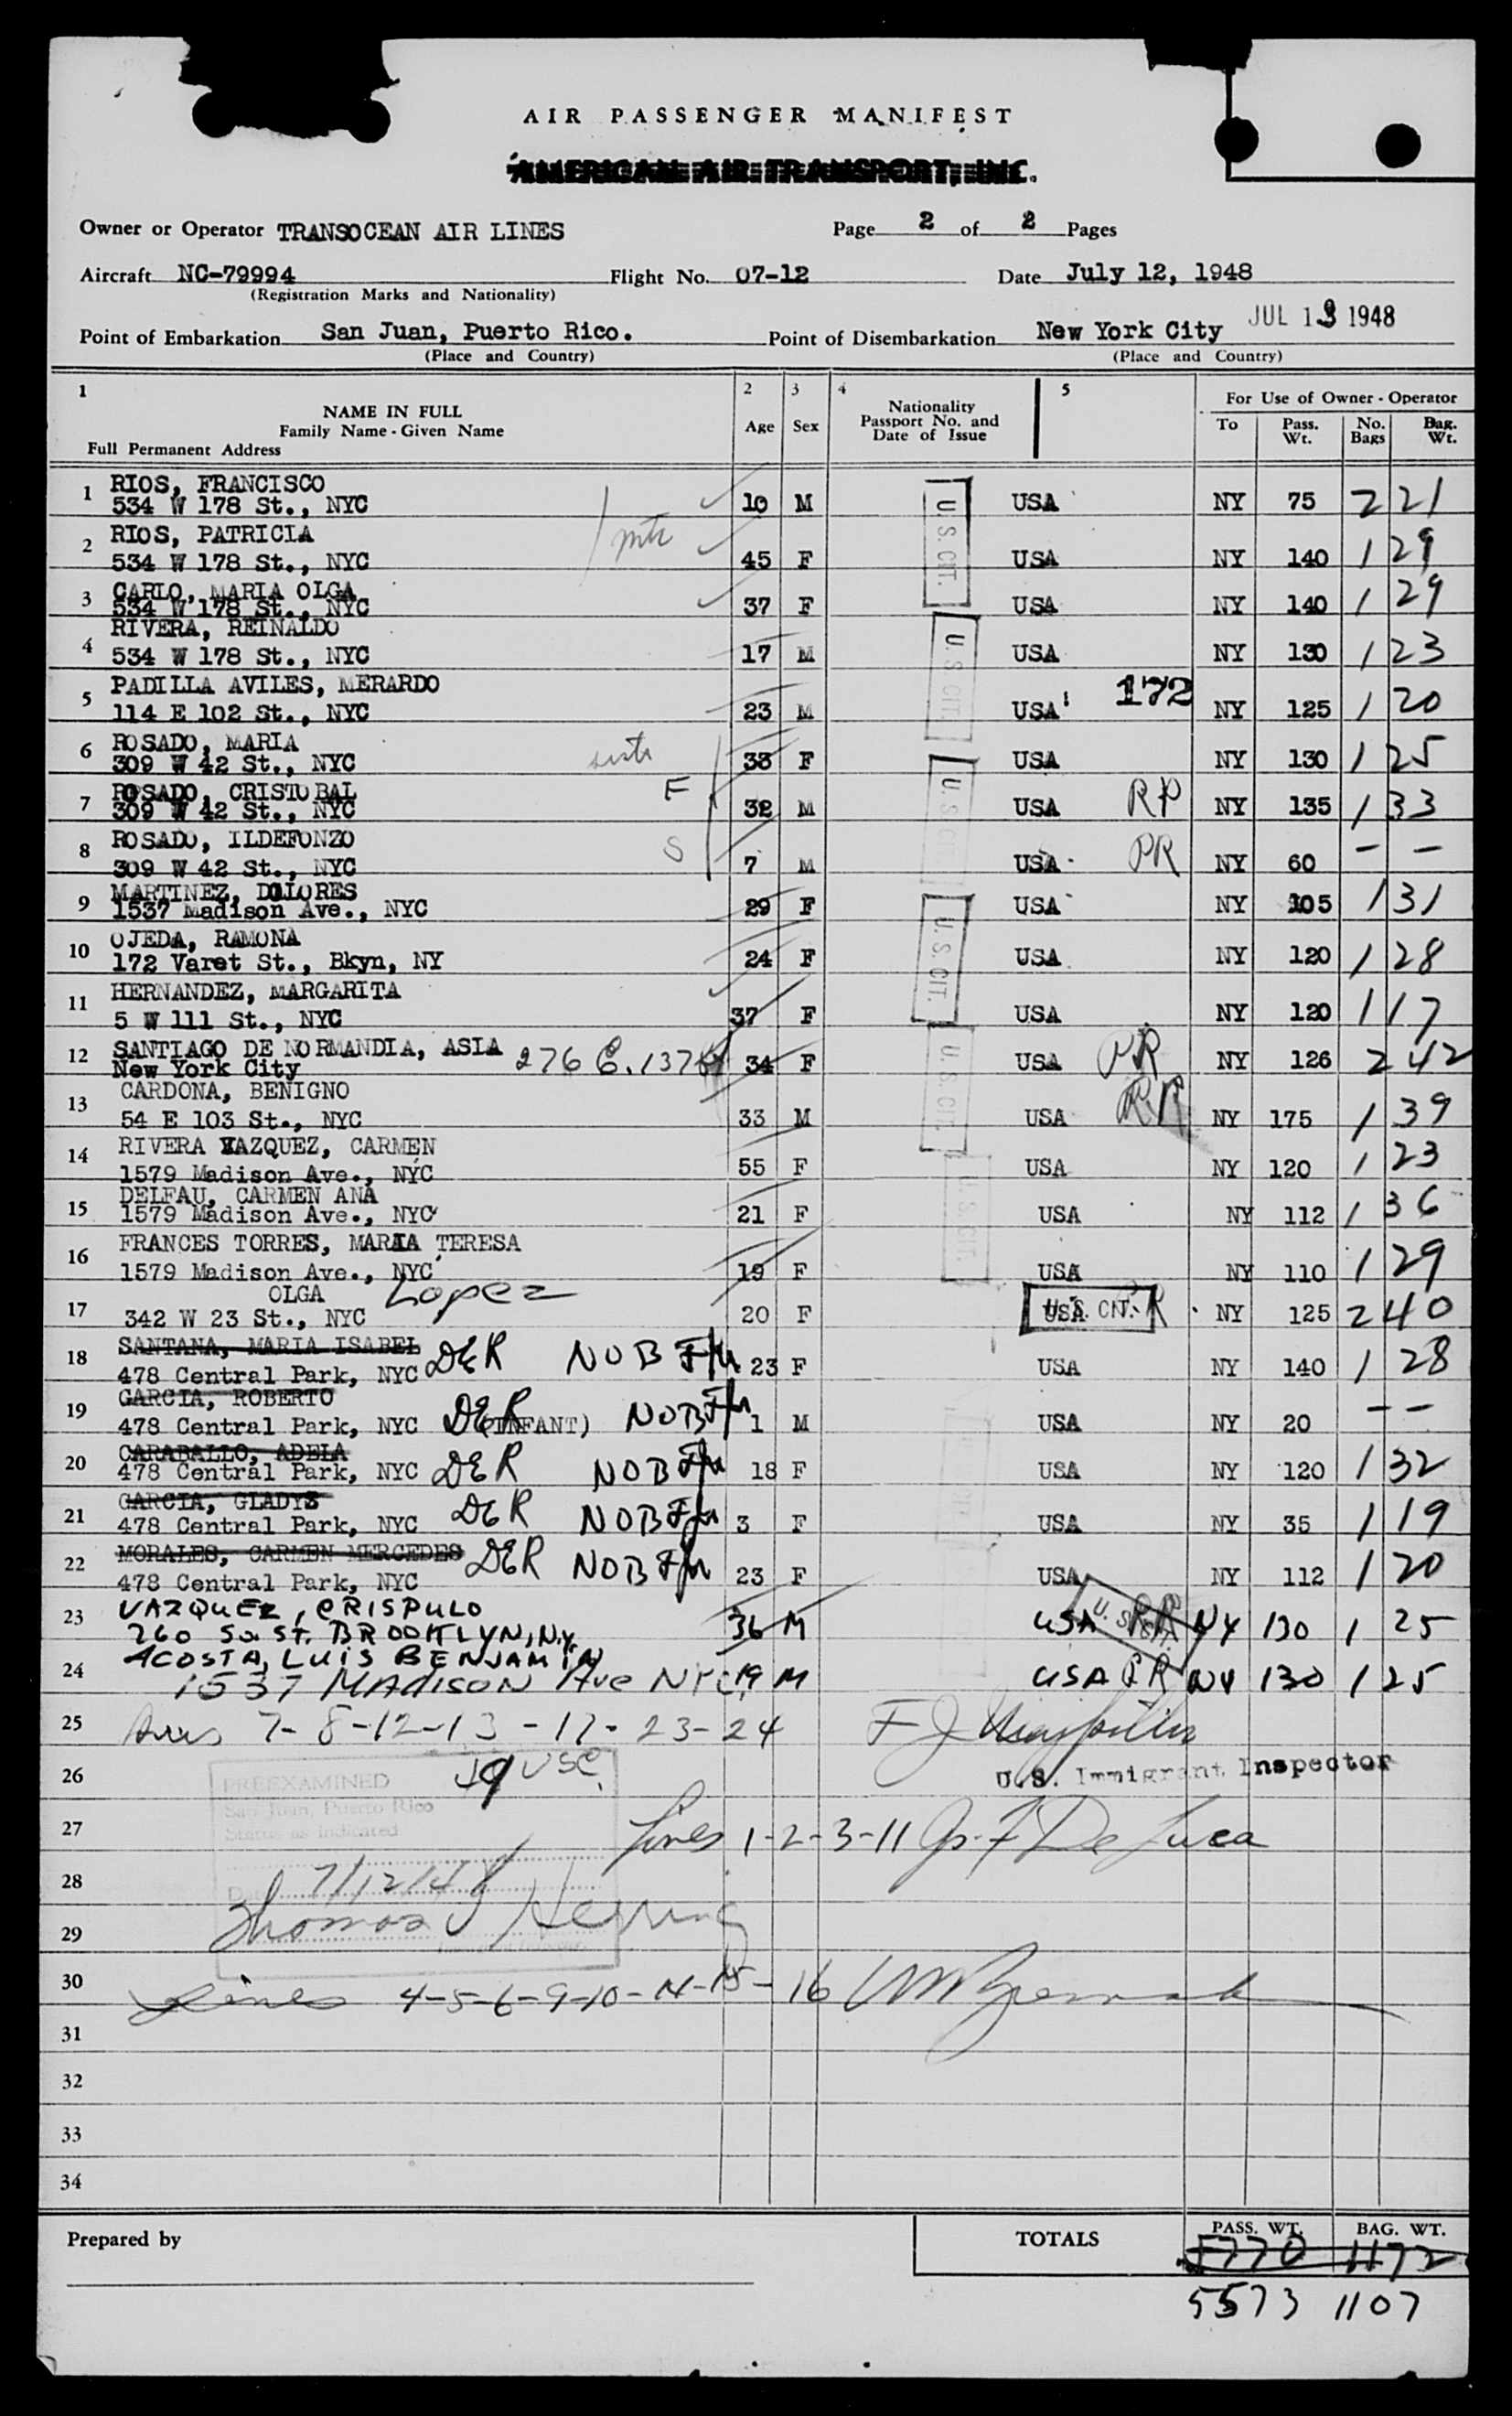 AIR PASSENGER MANIFEST
AMERICAN AIR TRANSPORT, INC.
Owner or Operator TRANSOCEAN AIR LINES Page 2 of 2 Pages
Aircraft NC-79994 Flight No. 07-12 Date July 12, 1948
(Registration Marks and Nationality)
JUL 13 1948
Point of Embarkation San Juan, Puerto Rico. Point of Disembarkation New York City
(Place and Country) (Place and Country)
1 2 3 4 5
NAME IN FULL Age Sex Nationality Passport No. and Date of Issue For Use of Owner - Operator
Family Name - Given Name To Pass. Wt. No. Bags Bag. Wt.
Full Permanent Address
1 RIOS, FRANCISCO
534 W 178 St., NYC 10 M USA NY 75 2 21
2 RIOS, PATRICIA
534 W 178 St., NYC 45 F USA NY 140 1 29
3 CARLO, MARIA OLGA
534 W 178 St., NYC 37 F USA NY 140 1 29
4 RIVERA, REINALDO
534 W 178 St., NYC 17 M USA NY 130 1 23
5 PADILLA AVILES, MERARDO
114 E 102 St., NYC 23 M USA 172 NY 125 1 20
6 ROSADO, MARIA
309 W 42 St., NYC 33 F USA NY 130 1 25
7 ROSADO, CRISTOBAL
309 W 42 St., NYC F 32 M USA RP NY 135 1 33
8 ROSADO, ILDEFONZO
309 W 42 St., NYC S 7 M USA PR NY 60 - -
9 MARTINEZ, DOLORES
1537 Madison Ave., NYC 29 F USA NY 105 1 31
10 OJEDA, RAMONA
172 Varet St., Bkyn, NY 24 F USA NY 120 1 28
11 HERNANDEZ, MARGARITA
5 W 111 St., NYC 37 F USA NY 120 1 17
12 SANTIAGO DE NORMANDIA, ASIA
New York City 276 E. 137 St 34 F USA PR NY 126 2 42
13 CARDONA, BENIGNO
54 E 103 St., NYC 33 M USA PR NY 175 1 39
14 RIVERA VAZQUEZ, CARMEN
1579 Madison Ave., NYC 55 F USA NY 120 1 23
15 DELFAU, CARMEN ANA
1579 Madison Ave., NYC 21 F USA NY 112 1 36
16 FRANCES TORRES, MARIA TERESA
1579 Madison Ave., NYC 19 F USA NY 110 1 29
17 OLGA Lopez
342 W 23 St., NYC 20 F USA U.S. CIT. NY 125 2 40
18 SANTANA, MARIA ISABEL
478 Central Park, NYC DER NOB 23 F USA NY 140 1 28
19 GARCIA, ROBERTO
478 Central Park, NYC DER (INFANT) NOB 1 M USA NY 20 - -
20 CARABALLO, ADELA
478 Central Park, NYC DER NOB 18 F USA NY 120 1 32
21 GARCIA, GLADYS
478 Central Park, NYC DER NOB 3 F USA NY 35 1 19
22 MORALES, CARMEN MERCEDES
478 Central Park, NYC DER NOB 23 F USA NY 112 1 20
23 VAZQUEZ, CRISPULO
260 So. St. BROOKLYN, N.Y. 36 M USA PR U.S. CIT. NY 130 1 25
24 ACOSTA, LUIS BENJAMIN
1537 MADISON Ave NYC, 19 M USA PR NY 130 1 25
25 7-8-12-13-17-23-24 F J
26 USC. U.S. Immigrant Inspector
PREEXAMINED
San Juan, Puerto Rico
Status as indicated
27 Lines 1-2-3-11 De Luca
28 Date 7/12/48
29 Thomas J Herring
30 Lines 4-5-6-9-10-14-15-16
31
32
33
34
Prepared by TOTALS PASS. WT. BAG. WT.
5770 1172
5573 1107
U.S. CIT.
U.S. CIT.
U.S. CIT.
U.S. CIT.
U.S. CIT.
U.S. CIT.